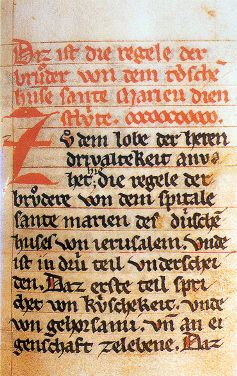 Diz ist die regele der
brůder von dem tv̊sche
huse sante Marien dien
stlvte.
Zv̊ dem lobe der heren
drivaltekeit anv
het; hie die regele der
brv̊dere von dem spitale
sante marien des dv̊schē
huses von ierusalem. vnde
ist in drů teil vnderschei
den. Daz erste teil spri
chet von kv̊schekeit. vnde
von gehorsamī. vn̄ an ei
genschaft zelebene. Daz